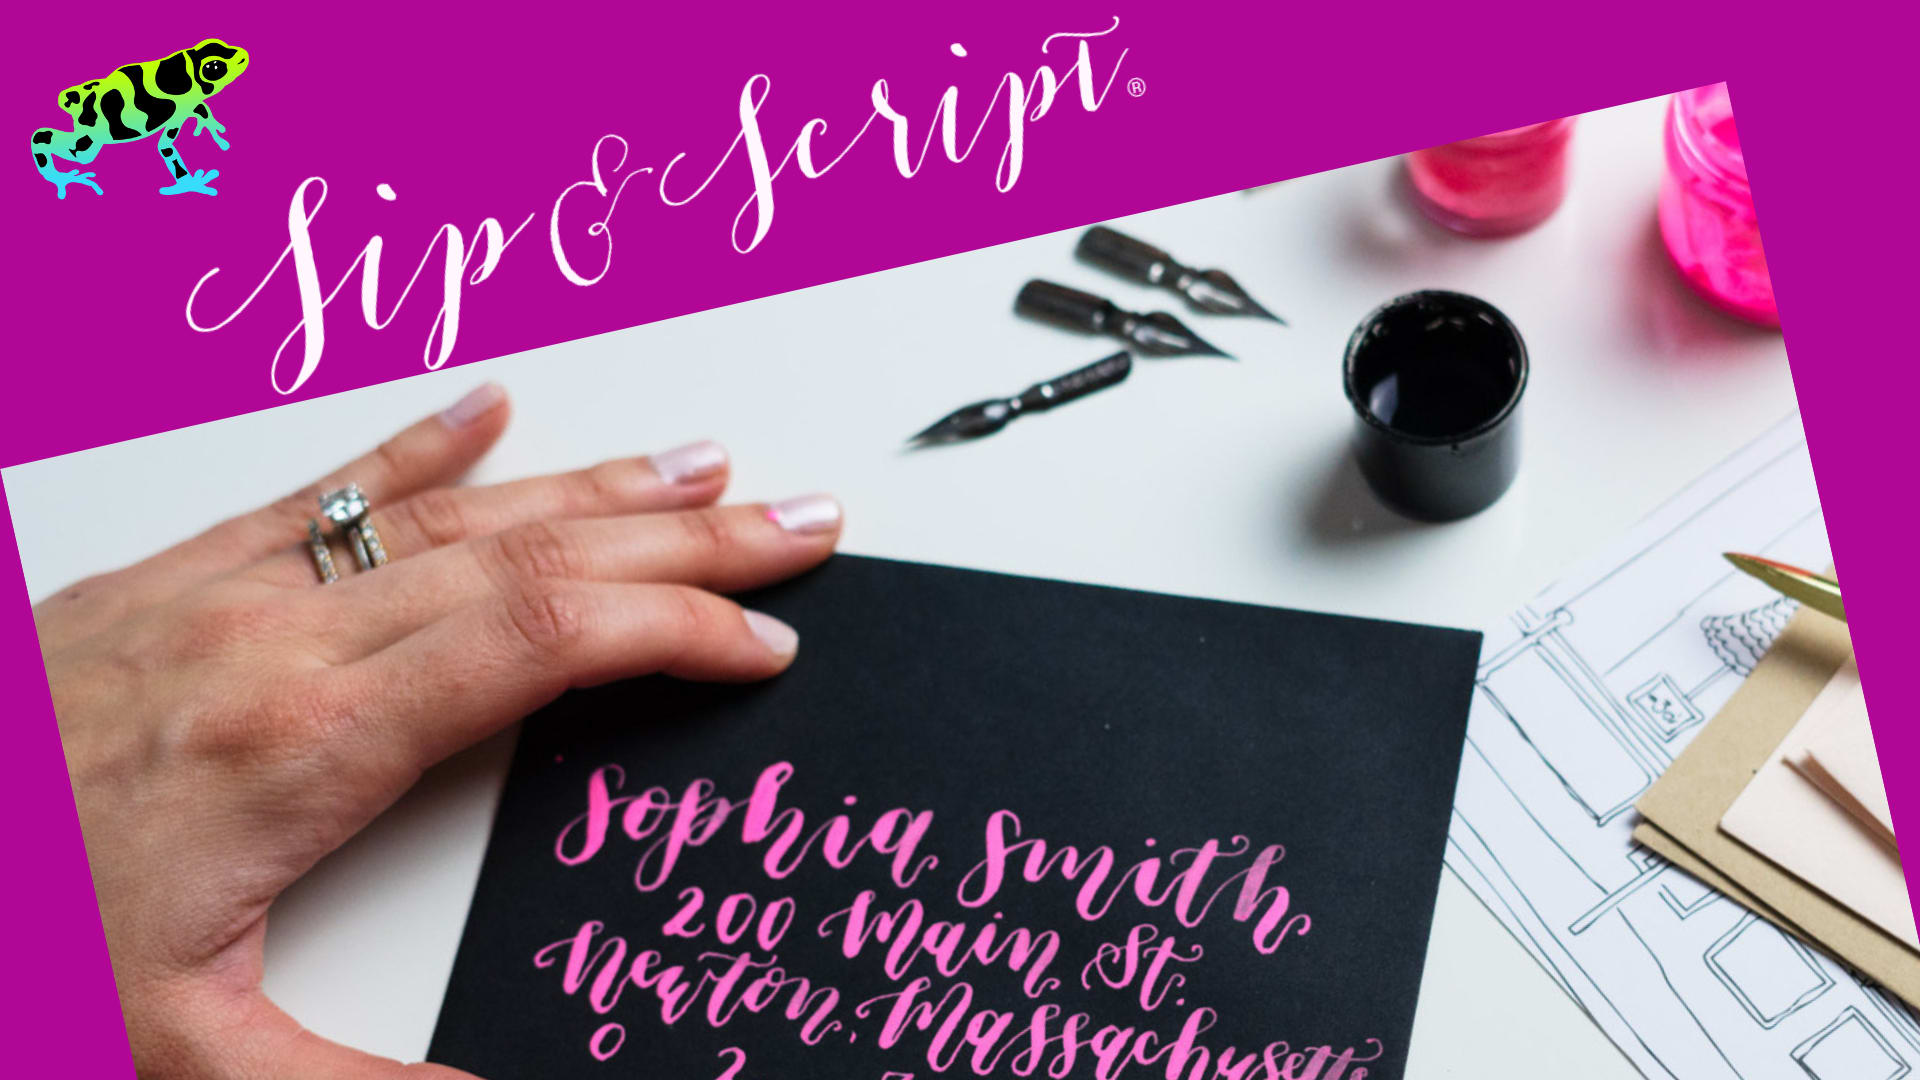 Sip & Script®
Sophia Smith
200 Main St.
Newton, Massachusetts
0 2